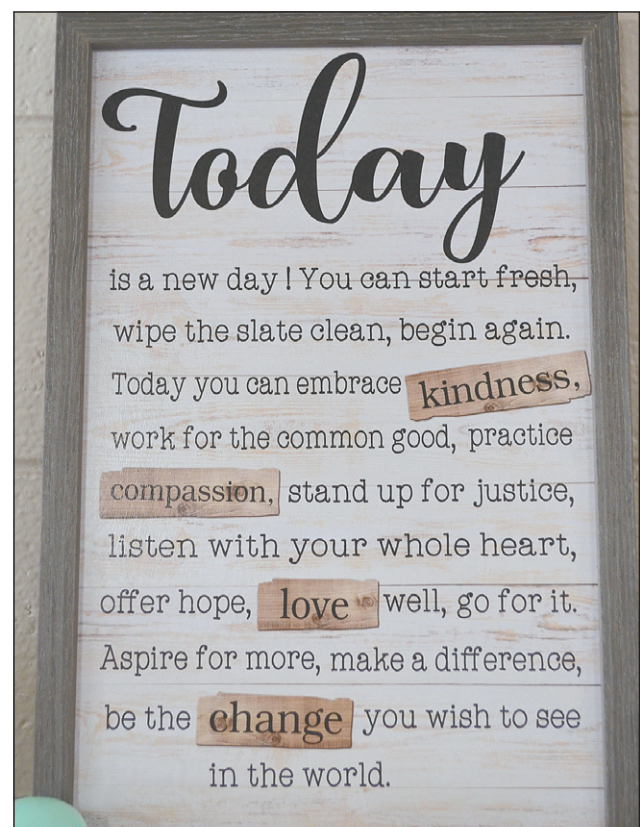 Today
is a new day! You can start fresh,
wipe the slate clean, begin again.
Today you can embrace kindness,
work for the common good, practice
compassion, stand up for justice,
listen with your whole heart,
offer hope, love well, go for it.
Aspire for more, make a difference,
be the change you wish to see
in the world.